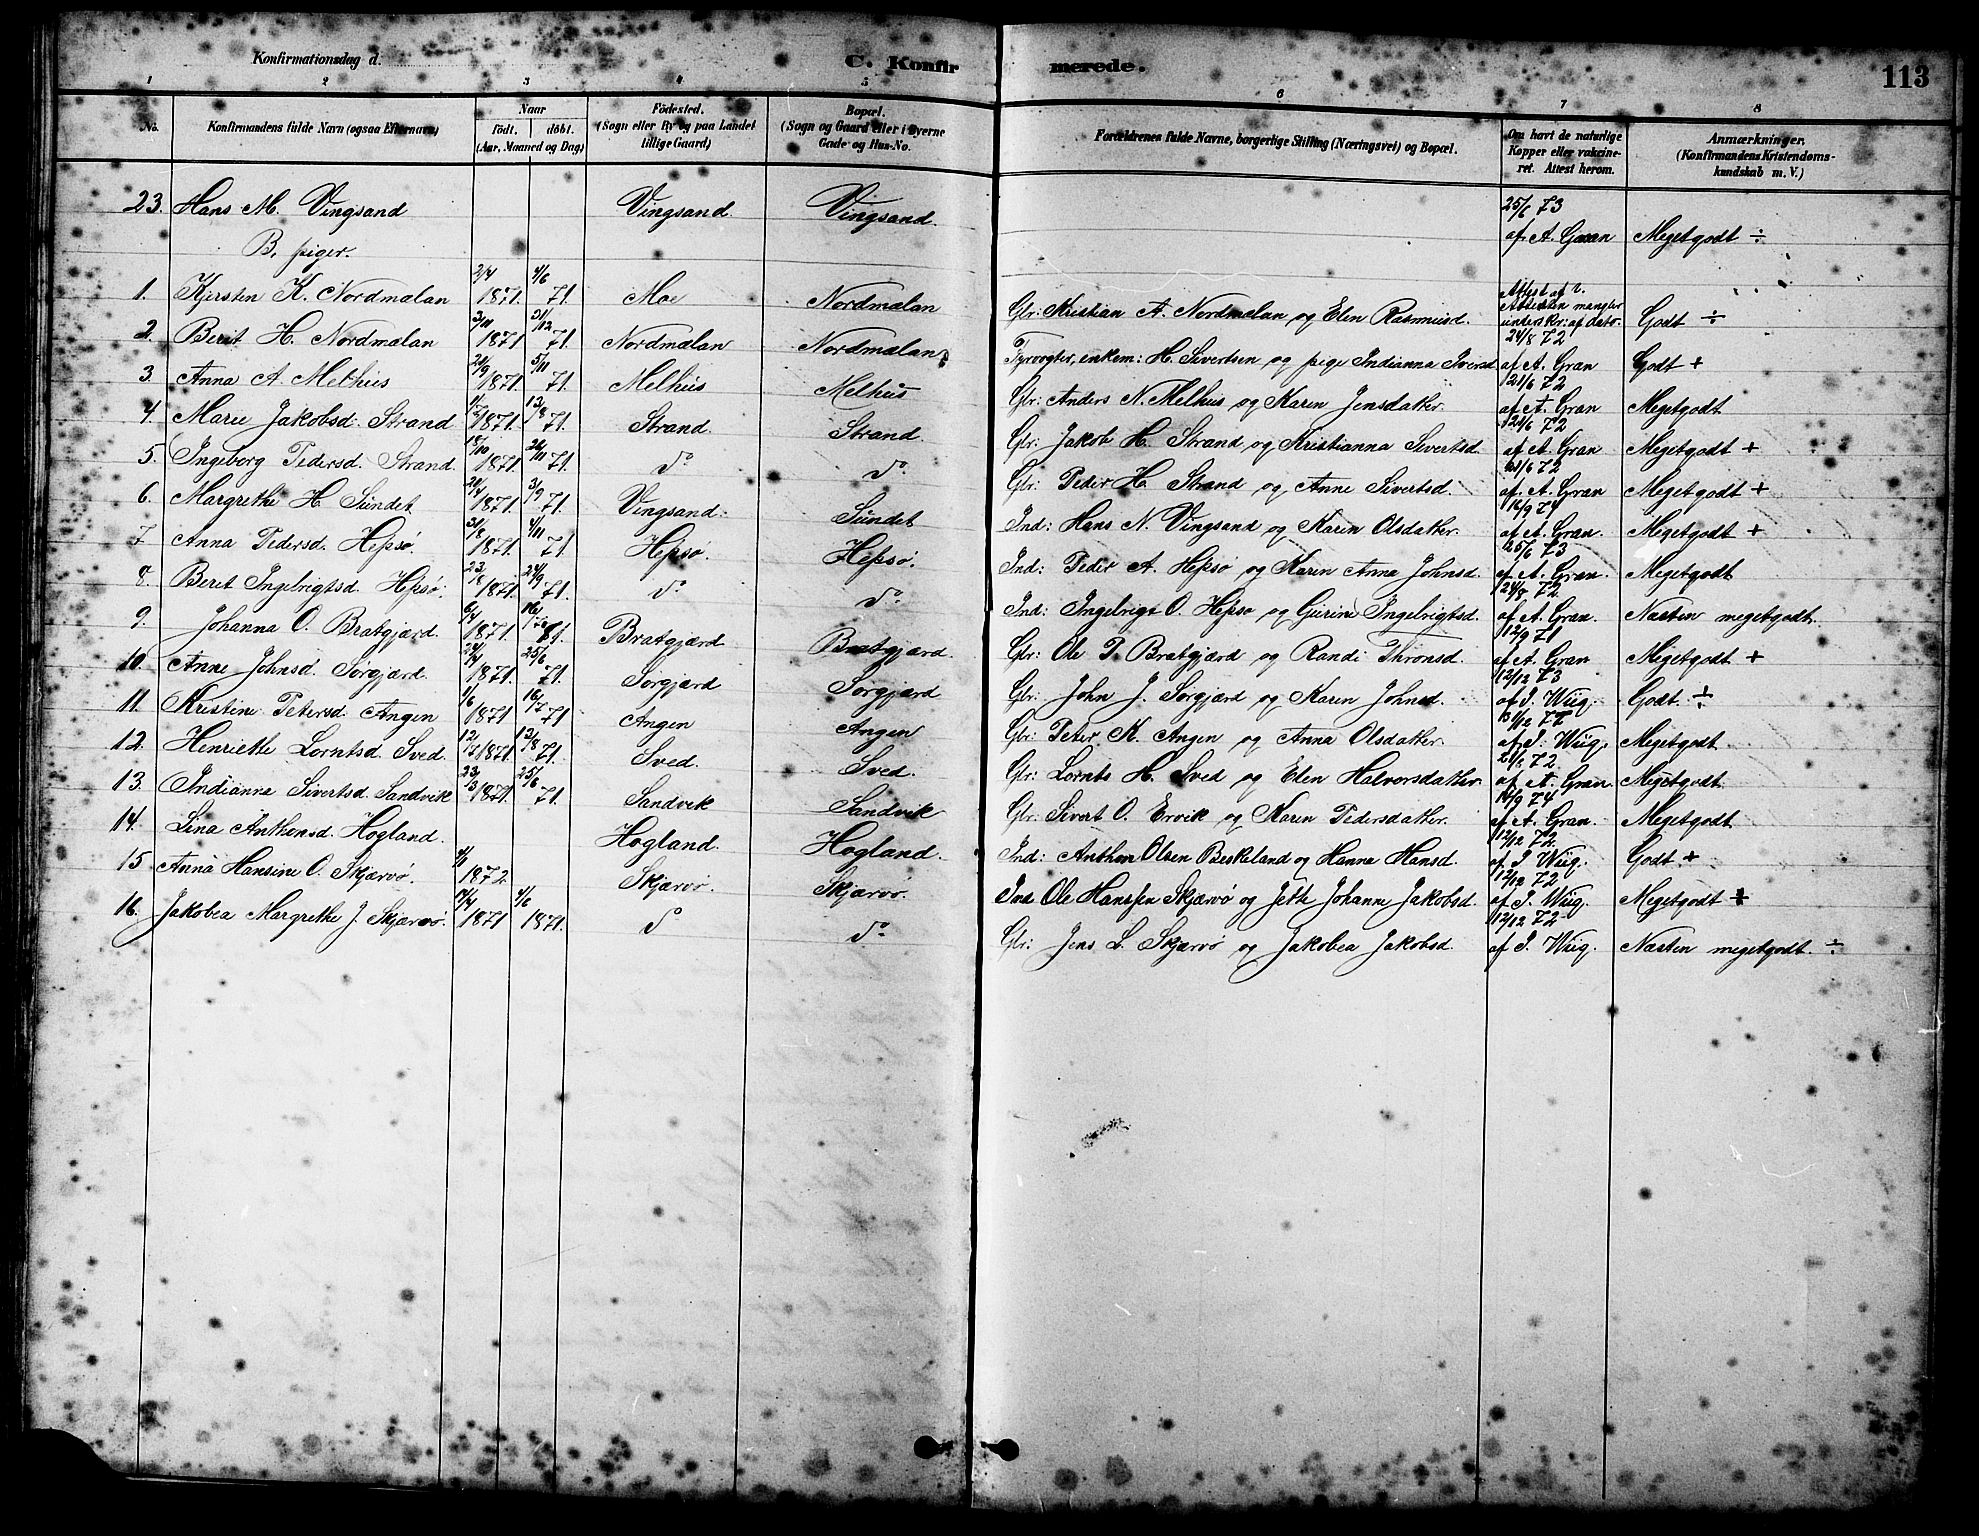 Konfirmationsdag d.
C. Konfirmerede.
113
1 2 3 4 5 6 7 8
No. Konfirmandens fulde Navn (ogsaa Efternavn) Naar födt. döbt. (Aar, Maaned og Dag) Födested. (Sogn eller By og paa Landet tillige Gaard) Bopæl. (Sogn og Gaard eller i Byerne Gade og Hus-No. Forældrenes fulde Navne, borgerlige Stilling (Næringsvei) og Bopæl. Om havt de naturlige Kopper eller vakcineret. Attest herom. Anmærkninger. (Konfirmandens Kristendomskundskab m. V.)
23. Hans M. Vingsand Vingsand Vingsand. 25/6 73 af A. Gran Megetgodt ÷
B. piger.
1. Kjersten K. Nordmælan 2/4 1871. 4/6 71. Moe Nordmælan Gbr: Kristian A. Nordmelan og Elen Rasmusd. Attesten mangler underskr: af dato. Godt ÷
2. Berit H. Nordmælan 1871 71. Nordmælan Nordmælan Fyrvogter, enkem: H. Sivertsen og pige Indianna Iversd 24/8 72 af A. Gran Godt +
3. Anna A. Melhus 1871. 5/11 71. Melhus Melhus Gbr: Anders N. Melhus og Karen Jensdatter. 21/6 72 af A. Gran Megetgodt
4. Marie Jakobsd. Strand 1871. 13/8 71. Strand. Strand. Gbr: Jakob H. Strand og Kristianna Sivertsd. 72 af A. Gran Megetgodt +
5. Ingeborg Pedersd. Strand. 15/10 1871. 26/11 71. do do Gbr: Peder H. Strand og Anne Sivertsd. 72 af. A. Gran Megetgodt +
6. Margrethe H. Sundet 1871. 3/9 71. Vingsand. Sundet Ind: Hans N. Vingsand og Karen Olsdatter. 16/9 74 af A. Gran. Megetgodt +
7 Anna Pedersd. Hepsø. 1871. 4/11 71. Hepsø. Hepsø. Ind: Peder A. Hepsø og Karen Anna Johnsd. 25/6 73 af A. Gran. Megetgodt
8. Beret Ingebrigtsd. Hepsø. 1871. 24/9 71. do do Ind: Ingebrigt O. Hepsø og Gurine Ingebrigtsd. 24/8 72 af A. Gran. Næsten megetgodt.
9. Johanna O. Bratgjærd. 1871. Bratgjærd Bratgjærd. Gbr: Ole P. Bratgjærd og Randi Thronsd. 12/9 71 af A. Gran Megetgodt +
10. Anne Johnsd. Sørgjærd. 1871. 25/6 71. Sørgjærd Sørgjærd Gbr: John J. Sørgjærd og Karen Johnsd. 12/12 73 af J. Wiig. Godt ÷
11. Kristine Petersd. Angen 1/6 1871 16/7 71. Angen Angen Gbr: Peter K. Angen og Anna Olsdatter. af J. Wiig. Megetgodt
12. Henriette Lorntsd. Sved. 1871. 13/8 71. Sved. Sved. Gbr: Lornts H. Sved og Elen Halvorsdatter 21/8 72 af A. Gran. Megetgodt
13. Indianna Sivertsd. Sandvik 23/3 1871. 25/6 71. Sandvik Sandvik Gbr: Sivert O. Ervik og Karen Pedersdatter. 16/9 74 af A. Gran. Megetgodt
14. Lina Anthonsd. Hogland. Hogland. Hogland. Ind: Anthon Olsen Beskeland og Hanna Hansd. 12/12 72 af J. Wiig. Godt +
15 Anna Hansine O. Skjærvø. 1872. Skjærvø. Skjærvø. Ind Ole Hanssen Skjærvø og Jette Johanne Jakobsd. 12/12 72 af J. Wiig. Megetgodt +
16. Jakobea Margrethe J. Skjærvø. 1871 4/6 1871. do do Gbr: Jens L. Skjærvø og Jakobea Jakobsd. 12/12 72 af J. Wiig. Næsten megetgodt. ÷